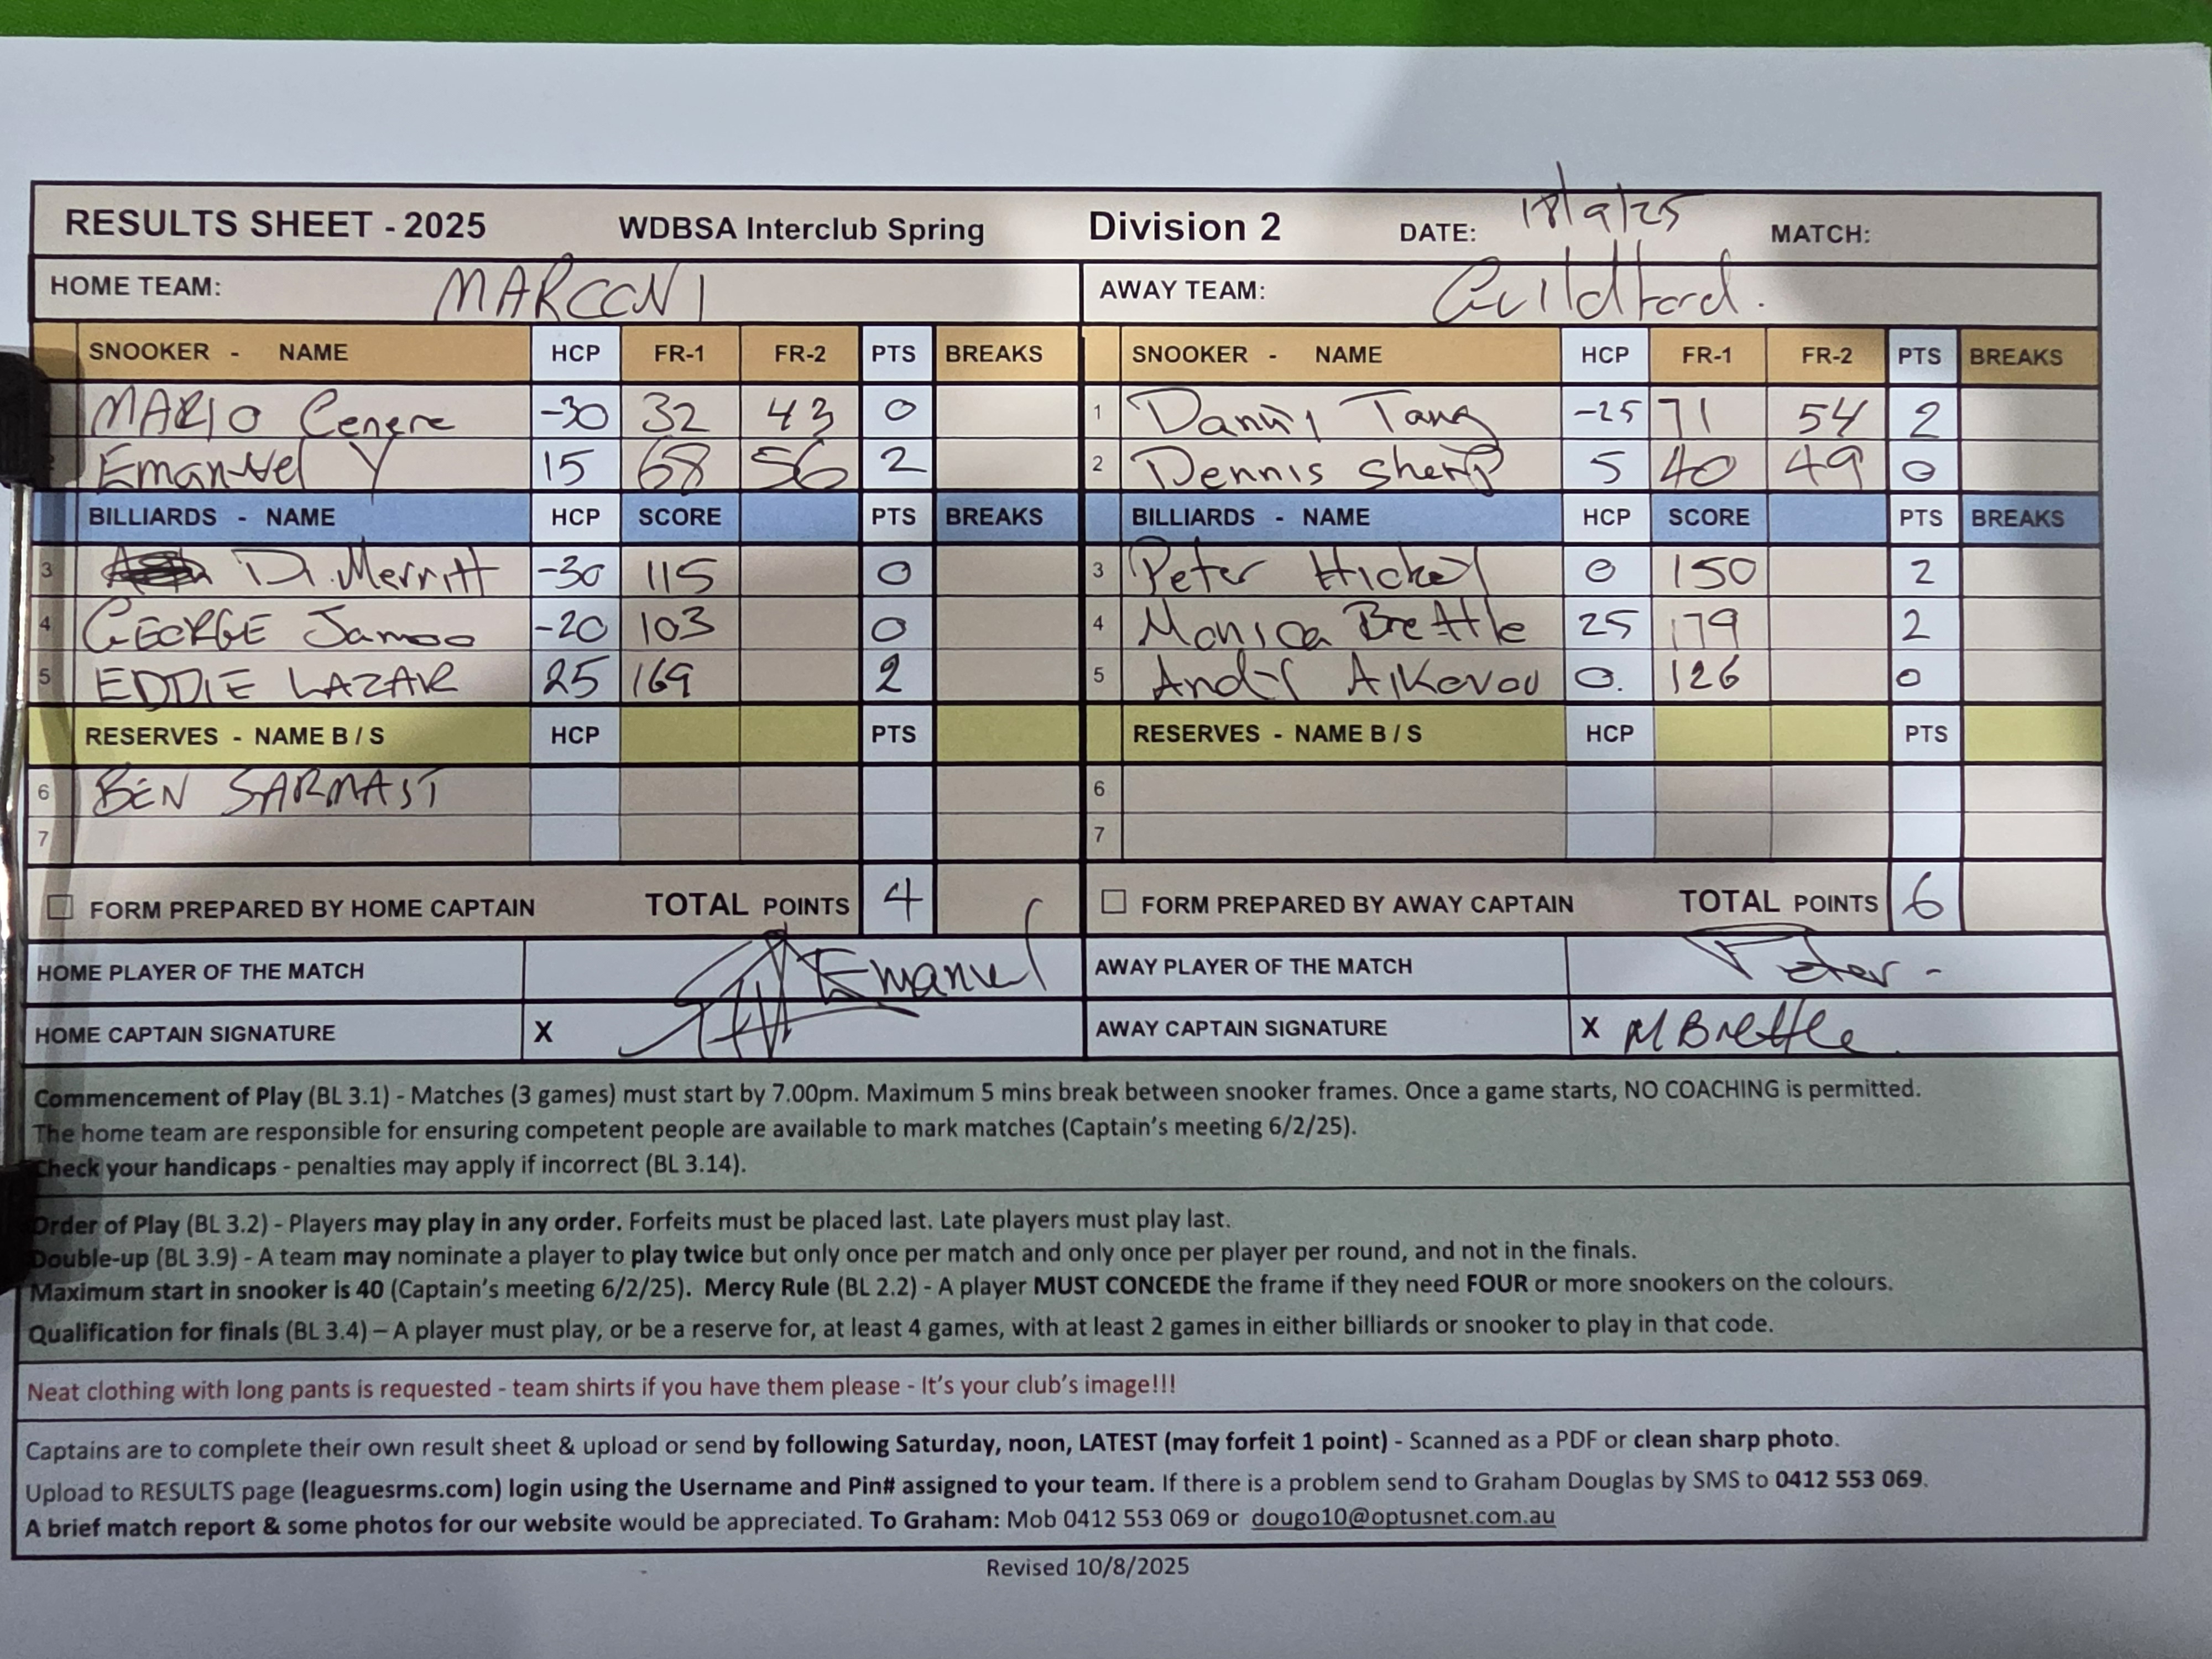 RESULTS SHEET - 2025 WDBSA Interclub Spring Division 2 DATE: 18/9/25 MATCH:
HOME TEAM: MARCONI AWAY TEAM: Guildford.
SNOOKER - NAME HCP FR-1 FR-2 PTS BREAKS SNOOKER - NAME HCP FR-1 FR-2 PTS BREAKS
MARIO Cenere -30 32 43 0 1 Danny Tang -25 71 54 2
2 Emanuel Y 15 68 56 2 2 Dennis 5 40 49 0
BILLIARDS - NAME HCP SCORE PTS BREAKS BILLIARDS - NAME HCP SCORE PTS BREAKS
3 D. Merritt -30 115 0 3 Peter Hickey 0 150 2
4 GEORGE Jamoo -20 103 0 4 Monica Brettle 25 179 2
5 EDDIE LAZAR 25 169 2 5 0. 126 0
RESERVES - NAME B / S HCP PTS RESERVES - NAME B / S HCP PTS
6 BEN SARMAST 6
7 7
FORM PREPARED BY HOME CAPTAIN TOTAL POINTS 4 FORM PREPARED BY AWAY CAPTAIN TOTAL POINTS 6
HOME PLAYER OF THE MATCH Emanuel AWAY PLAYER OF THE MATCH Peter -
HOME CAPTAIN SIGNATURE X AWAY CAPTAIN SIGNATURE X M Brettle
Commencement of Play (BL 3.1) - Matches (3 games) must start by 7.00pm. Maximum 5 mins break between snooker frames. Once a game starts, NO COACHING is permitted.
The home team are responsible for ensuring competent people are available to mark matches (Captain's meeting 6/2/25).
Check your handicaps - penalties may apply if incorrect (BL 3.14).
Order of Play (BL 3.2) - Players may play in any order. Forfeits must be placed last. Late players must play last.
Double-up (BL 3.9) - A team may nominate a player to play twice but only once per match and only once per player per round, and not in the finals.
Maximum start in snooker is 40 (Captain's meeting 6/2/25). Mercy Rule (BL 2.2) - A player MUST CONCEDE the frame if they need FOUR or more snookers on the colours.
Qualification for finals (BL 3.4) – A player must play, or be a reserve for, at least 4 games, with at least 2 games in either billiards or snooker to play in that code.
Neat clothing with long pants is requested - team shirts if you have them please - It's your club's image!!!
Captains are to complete their own result sheet & upload or send by following Saturday, noon, LATEST (may forfeit 1 point) - Scanned as a PDF or clean sharp photo.
Upload to RESULTS page (leaguesrms.com) login using the Username and Pin# assigned to your team. If there is a problem send to Graham Douglas by SMS to 0412 553 069.
A brief match report & some photos for our website would be appreciated. To Graham: Mob 0412 553 069 or dougo10@optusnet.com.au
Revised 10/8/2025